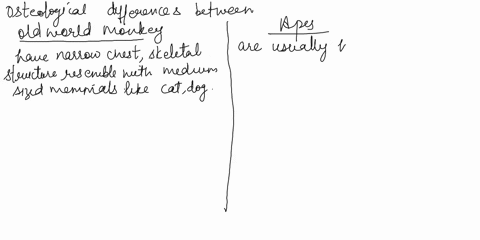 Osteological differences between
old world monkey
have narrow chest, skeletal
structure resemble with medium
sized memmials like cat, dog.
Apes
are usually